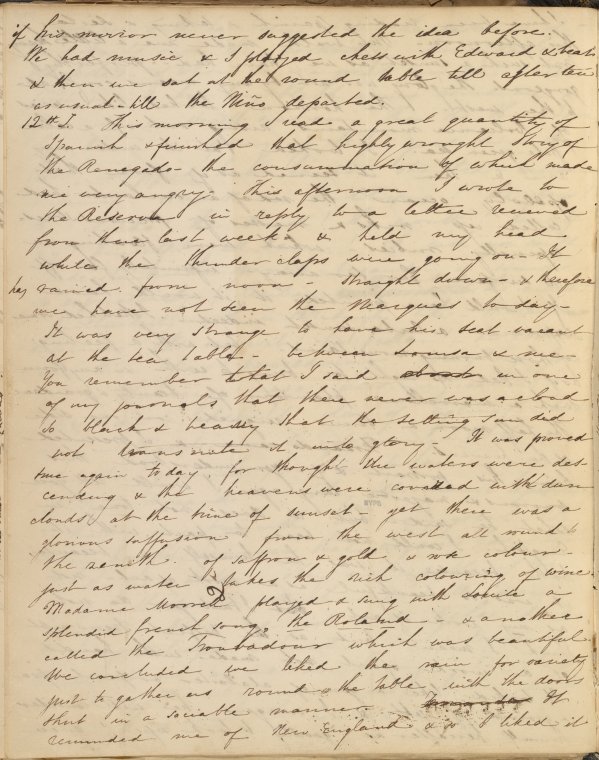 if his mirror never suggested the idea before.
We had music & I played chess with Edward & beat
& then we sat at the round table till after ten
as usual - till the Niños departed.
12th I. This morning I read a great quantity of
Spanish & finished that highly wrought Story of
the Renegado - the consummation of which made
me very angry. This afternoon I wrote to
the Reserva in reply to a letter received
from thence last week - & held my head
while the thunder claps were going on - It
has rained from noon - straight down - & therefore
we have not seen the Marquès to day -
It was very strange to have his seat vacant
at the tea table - between Louisa & me -
You remember what I said in one
of my journals that there never was a cloud
so black & heavy that the setting sun did
not transmute it into glory - It was proved
true again to day. for though the waters were des-
cending & the heavens were covered with dun
clouds at the time of sunset - yet there was a
glorious suffusion from the west all round to
the zenith. of saffron & gold & rose colour -
just as water takes the rich colouring of wine.
Madame Morrell played & sung with Louisa a
splendid french song, the Roland - & another
called the Troubadour which was beautiful
We concluded we liked the rain for variety
just to gather us round the table with the doors
shut in a sociable manner. It
reminded me of New England & so I liked it